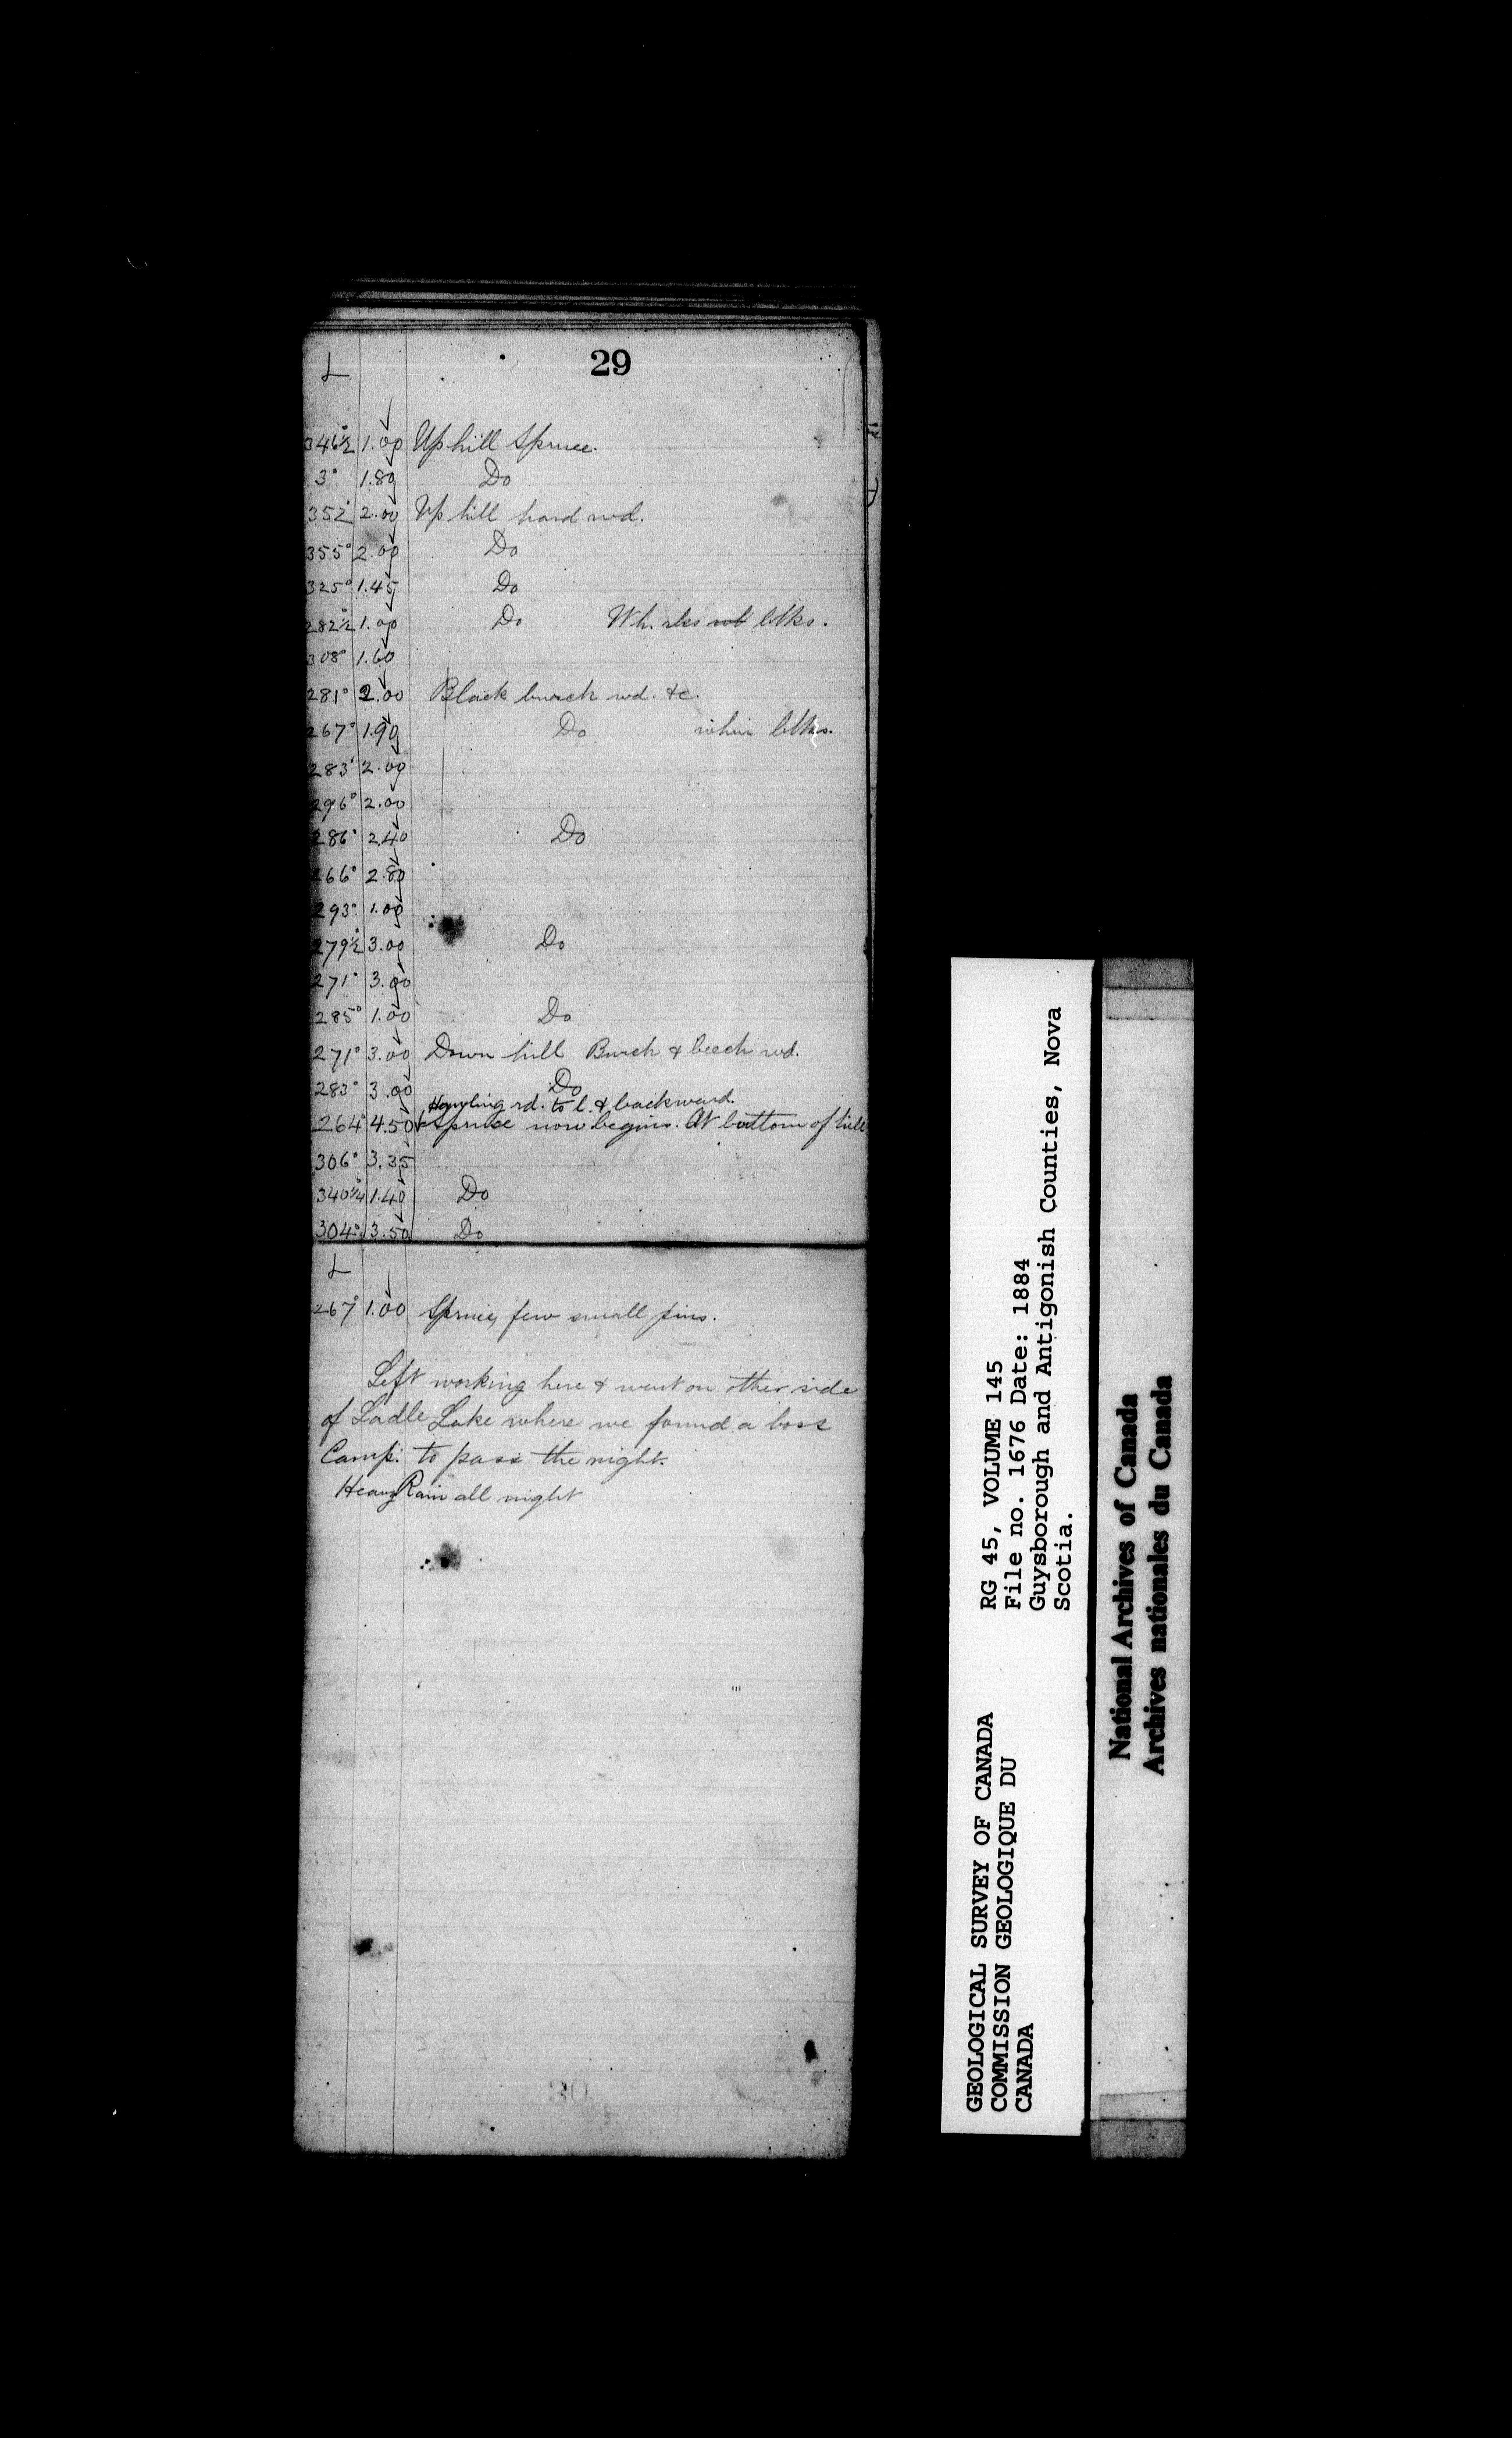 29
L
346½° 1.00 Up hill Spruce.
3° 1.80 Do
352° 2.00 Up hill hard wd.
355° 2.00 Do
325° 1.45 Do
282½° 1.00 Do Wh.
308° 1.60
281° 2.00 Black burch wd. &c.
267° 1.90 Do
283° 2.00
296° 2.00
286° 2.40 Do
266° 2.80
293° 1.00
279½° 3.00 Do
271° 3.00
285° 1.00 Do
271° 3.00 Down hill Burch & beech wd.
283° 3.00 Do
Hauling rd. to l. & backward.
264° 4.50 Spruce now begins. At bottom of hill
306° 3.35
340¼° 1.40 Do
304° 3.50 Do
L
267° 1.00 Spruce, few small firs.
Left working here & went on other side
of Ladle Lake where we found a boss
Camp. to pass the night.
Heavy Rain all night
30
RG 45, VOLUME 145
File no. 1676 Date: 1884
Guysborough and Antigonish Counties, Nova
Scotia.
GEOLOGICAL SURVEY OF CANADA
COMMISSION GEOLOGIQUE DU
CANADA
National Archives of Canada
Archives nationales du Canada